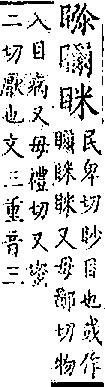 眯
民卑切眇目也或作
眯眯又母鄙切物
入目病又母禮切又蜜
二切厭也文三重音三